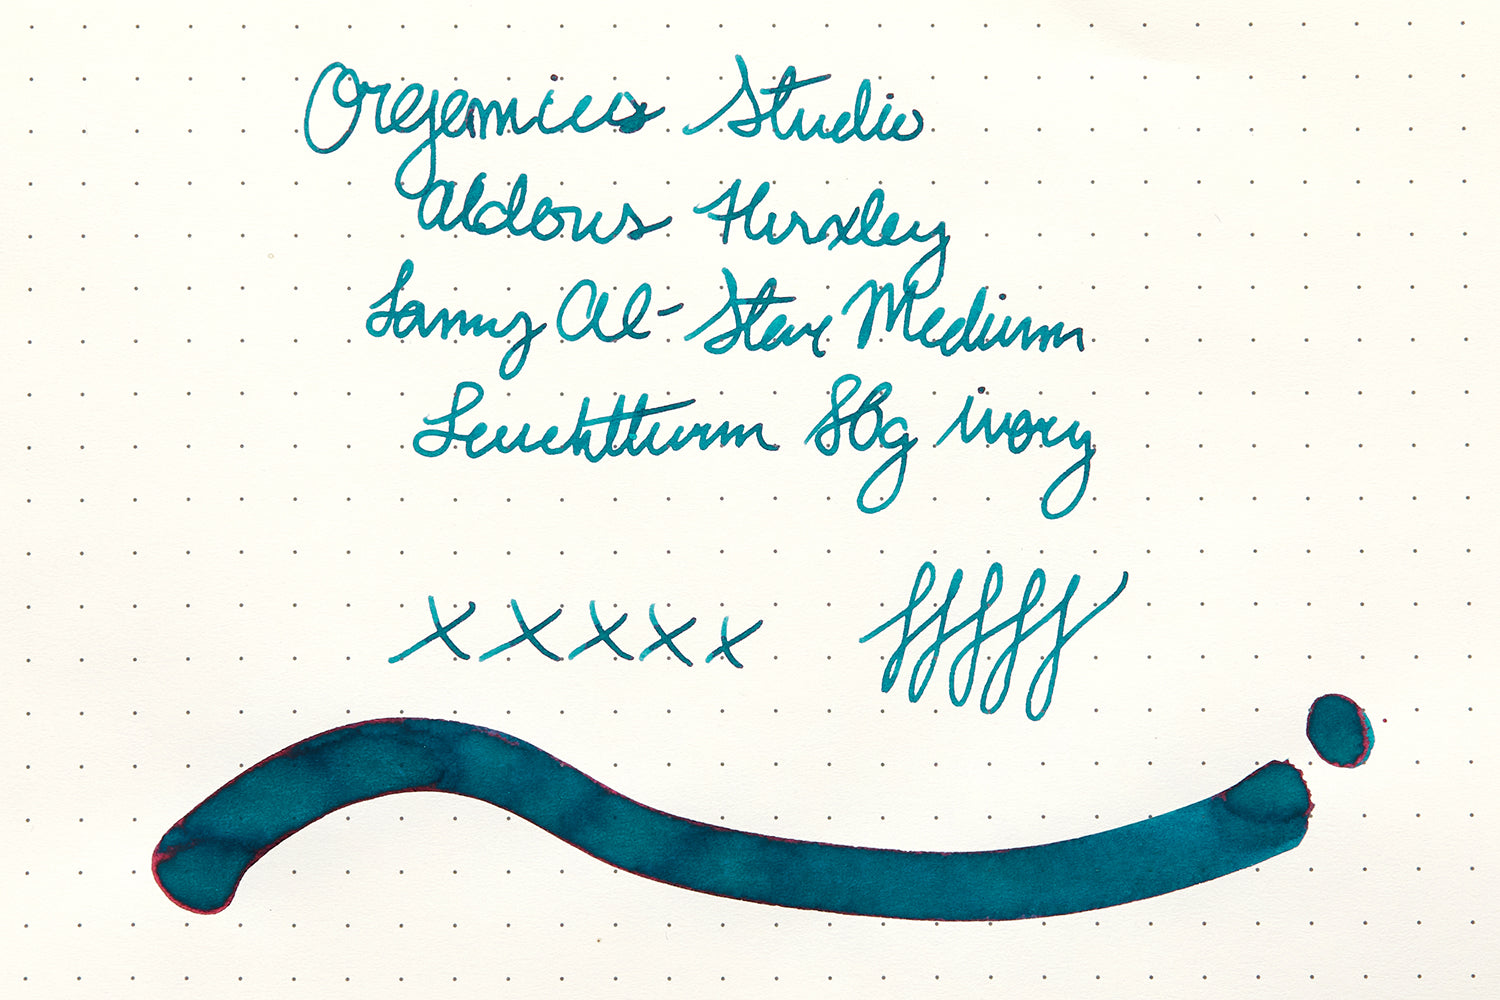 Organics Studio
Aldous Huxley
Lamy Al-Star Medium
Leuchtturm 80g ivory
x x x x x fffff